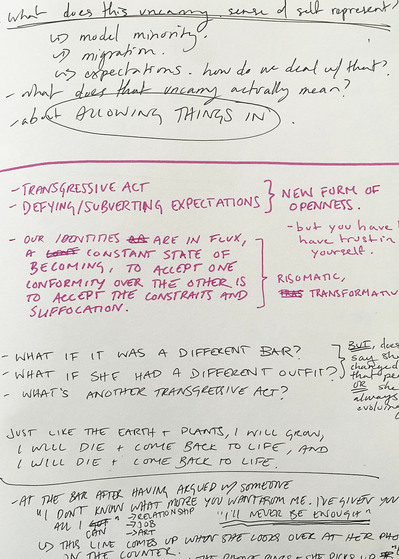 what does this uncanny sense of self represent?
↳ model minority.
↳ migration.
↳ expectations. how do we deal w/ that?
- what does that uncanny actually mean?
- about ALLOWING THINGS IN.
- TRANSGRESSIVE ACT
- DEFYING/SUBVERTING EXPECTATIONS } NEW FORM OF OPENNESS.
- but you have
have trust in
yourself.
- OUR IDENTITIES ARE IN FLUX,
A CONSTANT STATE OF
BECOMING, TO ACCEPT ONE
CONFORMITY OVER THE OTHER IS
TO ACCEPT THE CONSTRAITS AND
SUFFOCATION.
RISOMATIC,
TRANSFORMATIV
- WHAT IF IT WAS A DIFFERENT BAR?
- WHAT IF SHE HAD A DIFFERENT OUTFIT?
- WHAT'S ANOTHER TRANSGRESSIVE ACT?
BUT, does
say she
changed
that pe
OR she
always
evolvin
JUST LIKE THE EARTH + PLANTS, I WILL GROW,
I WILL DIE + COME BACK TO LIFE, AND
I WILL DIE + COME BACK TO LIFE.
- AT THE BAR AFTER HAVING ARGUED W/ SOMEONE
"I DON'T KNOW WHAT MORE YOU WANT FROM ME. I'VE GIVEN YOU
ALL I GOT → RELATIONSHIP "I'LL NEVER BE ENOUGH"
CAN → JOB
→ ART
↳ THIS LINE COMES UP WHEN SHE LOOKS OVER AT HER PHO
IN THE COUNTER. THE PHONE RINGS + SHE PICKS UP